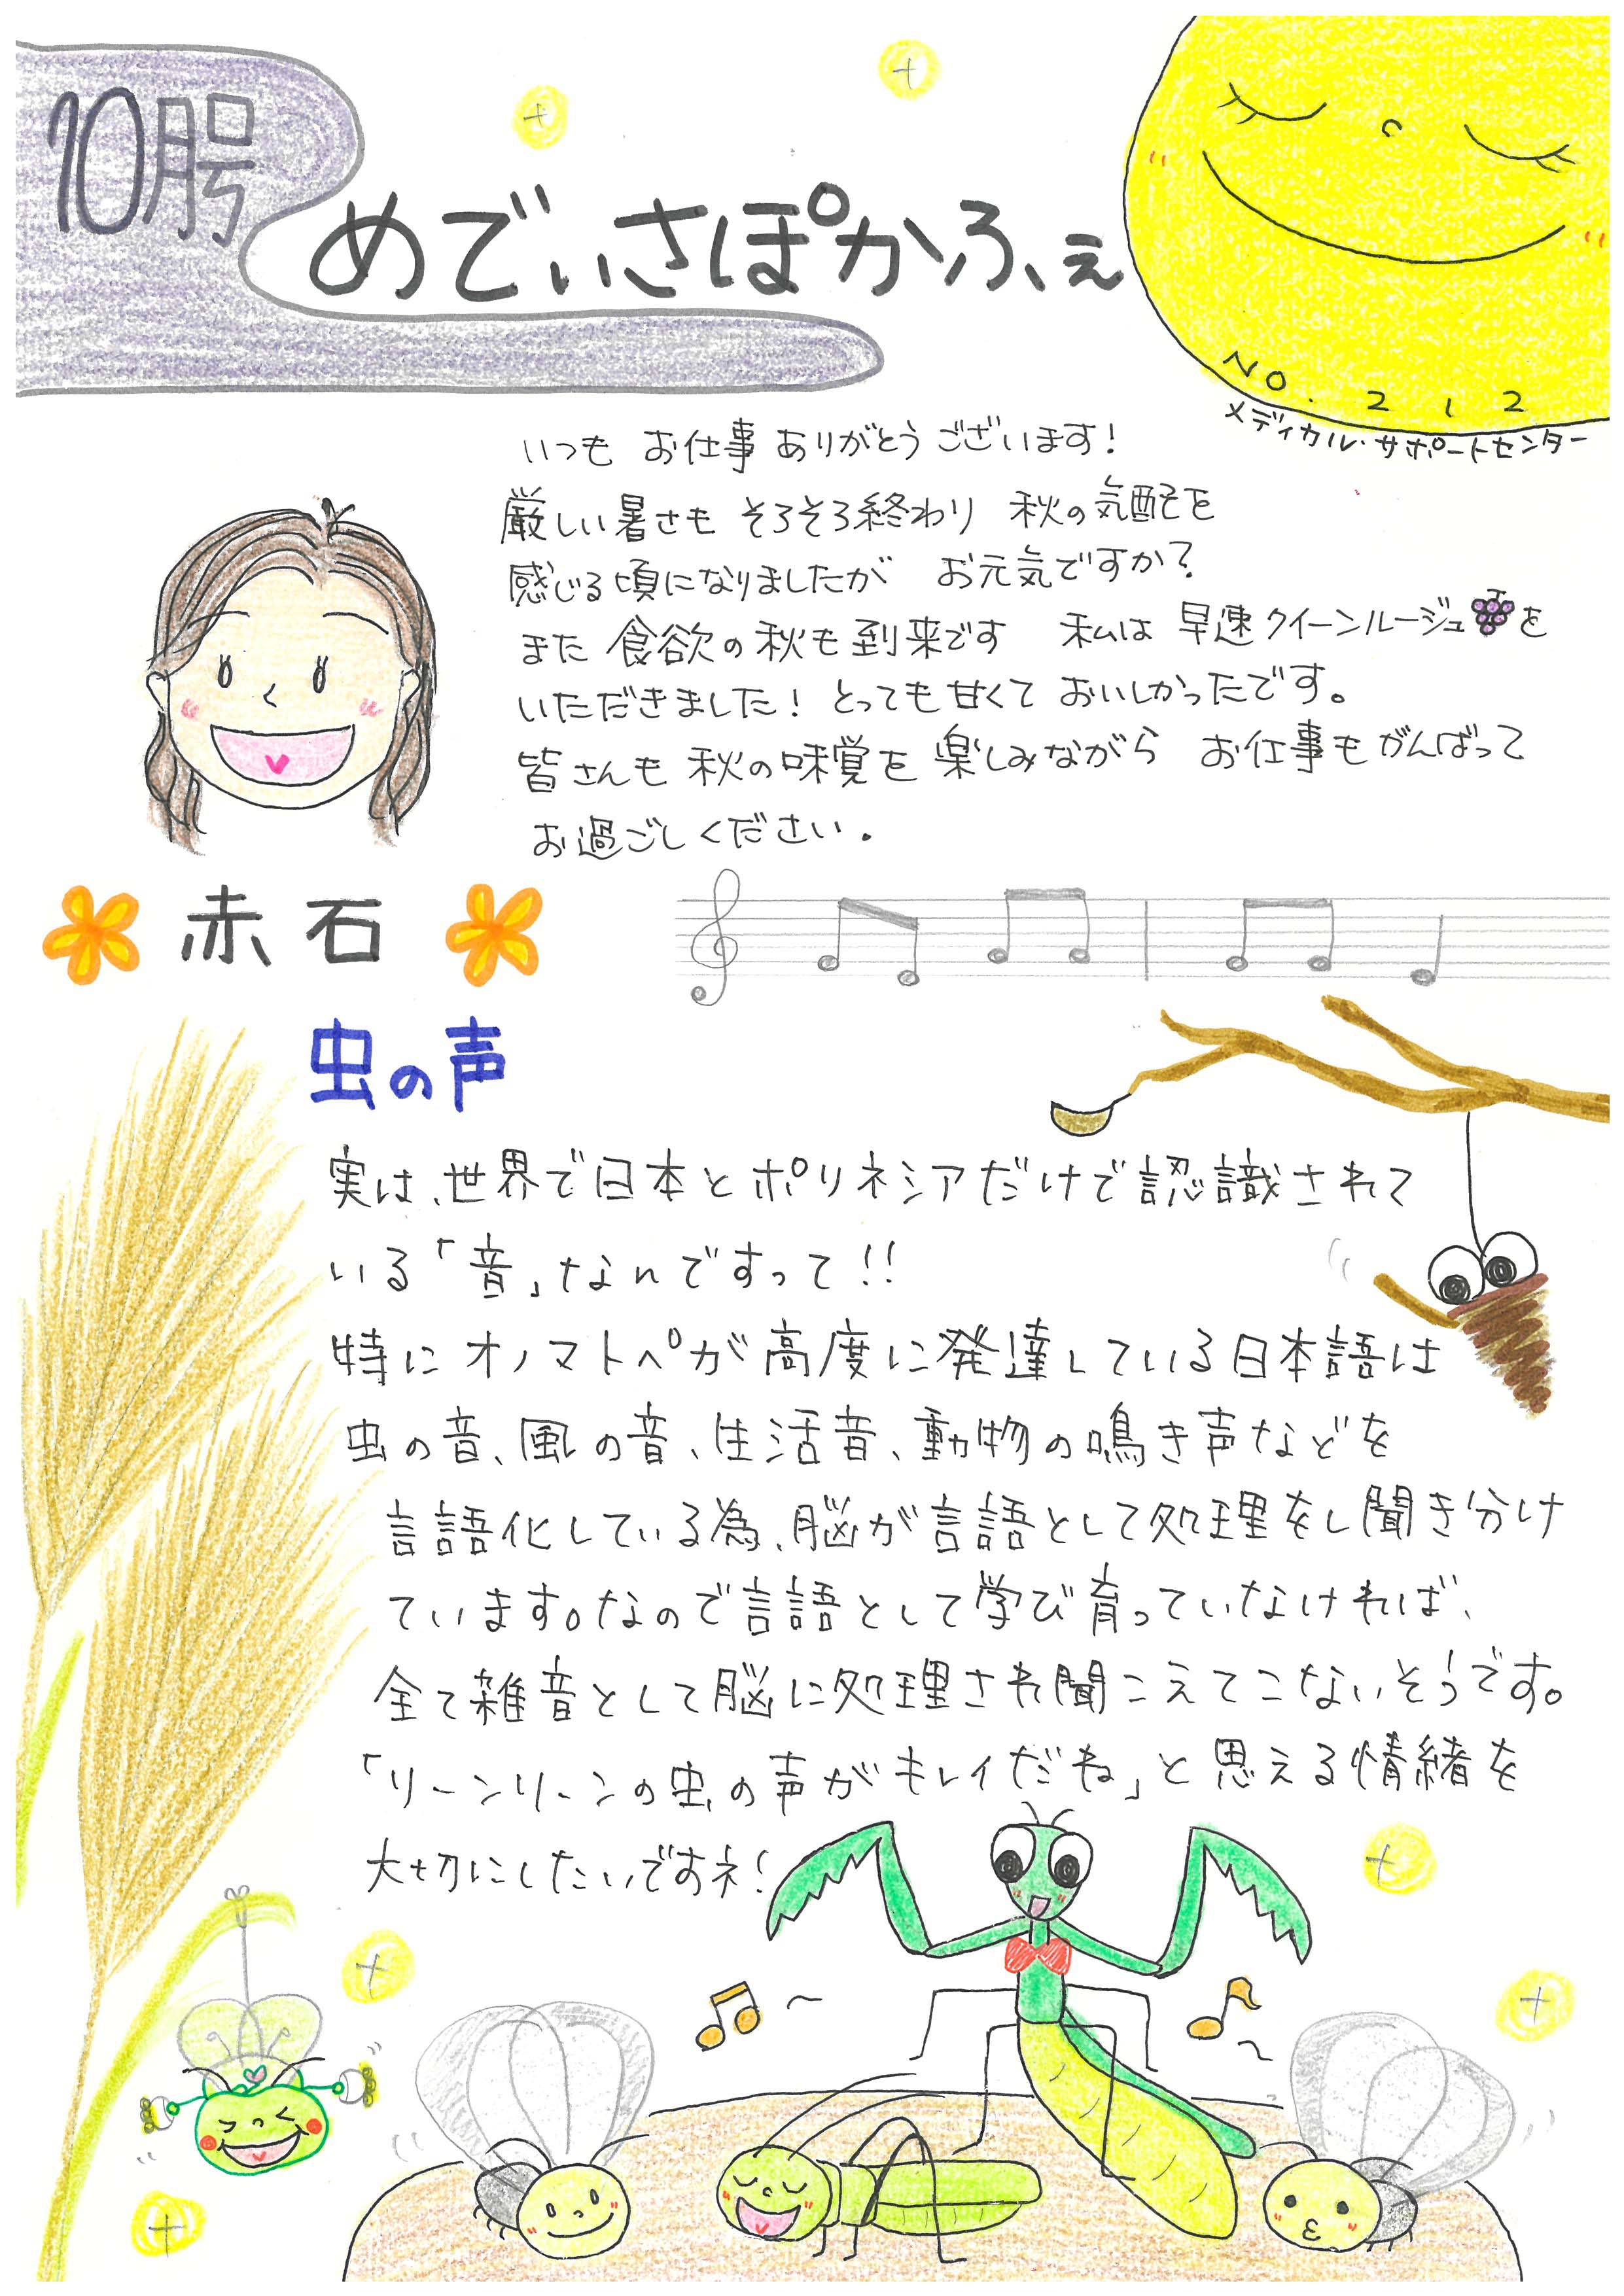 10月号
めでぃさぽかふぇ
NO.212
メディカル・サポートセンター
いつも お仕事 ありがとうございます!
厳しい暑さも そろそろ終わり 秋の気配を
感じる頃になりましたが お元気ですか?
また 食欲の秋も到来です 私は 早速クイーンルージュを
いただきました! とっても甘くて おいしかったです。
皆さんも 秋の味覚を 楽しみながら お仕事もがんばって
お過ごしください。
赤石
虫の声
実は、世界で日本とポリネシアだけで認識されて
いる「音」なんですって!!
特にオノマトペが高度に発達している日本語は
虫の音、風の音、生活音、動物の鳴き声などを
言語化している為、脳が言語として処理をし聞き分け
ています。なので言語として学び育っていなければ、
全て雑音として脳に処理され聞こえてこないそうです。
「リーンリーンの虫の声がキレイだね」と思える情緒を
大切にしたいですネ!